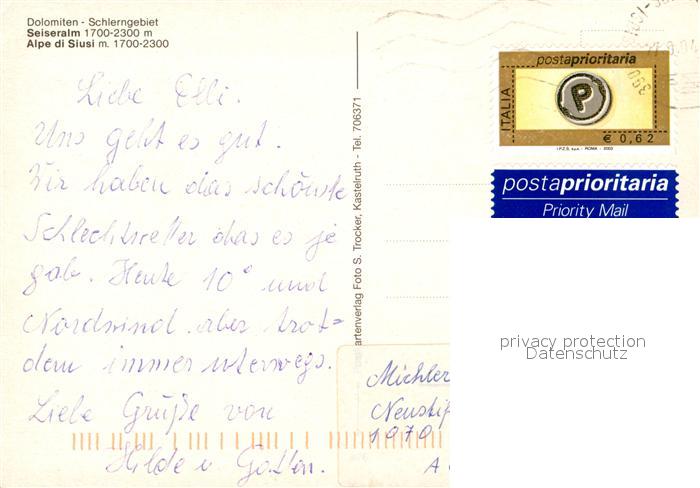 Dolomiten - Schlerngebiet
Seiseralm 1700-2300 m
Alpe di Siusi m. 1700-2300
Liebe Elli.
Uns geht es gut.
Wir haben das schönste
Schlechtwetter das es je
gab. Heute 10° und
Nordwind. aber trot=
dem immer unterwegs.
Liebe Grüße von
Hilde u
artenverlag Foto S. Trocker, Kastelruth - Tel. 706371
postaprioritaria
ITALIA
P
€ 0,62
I.P.Z.S. S.p.A. - ROMA - 2003
postaprioritaria
Priority Mail
privacy protection
Datenschutz
Michler
Neustif
1070
A